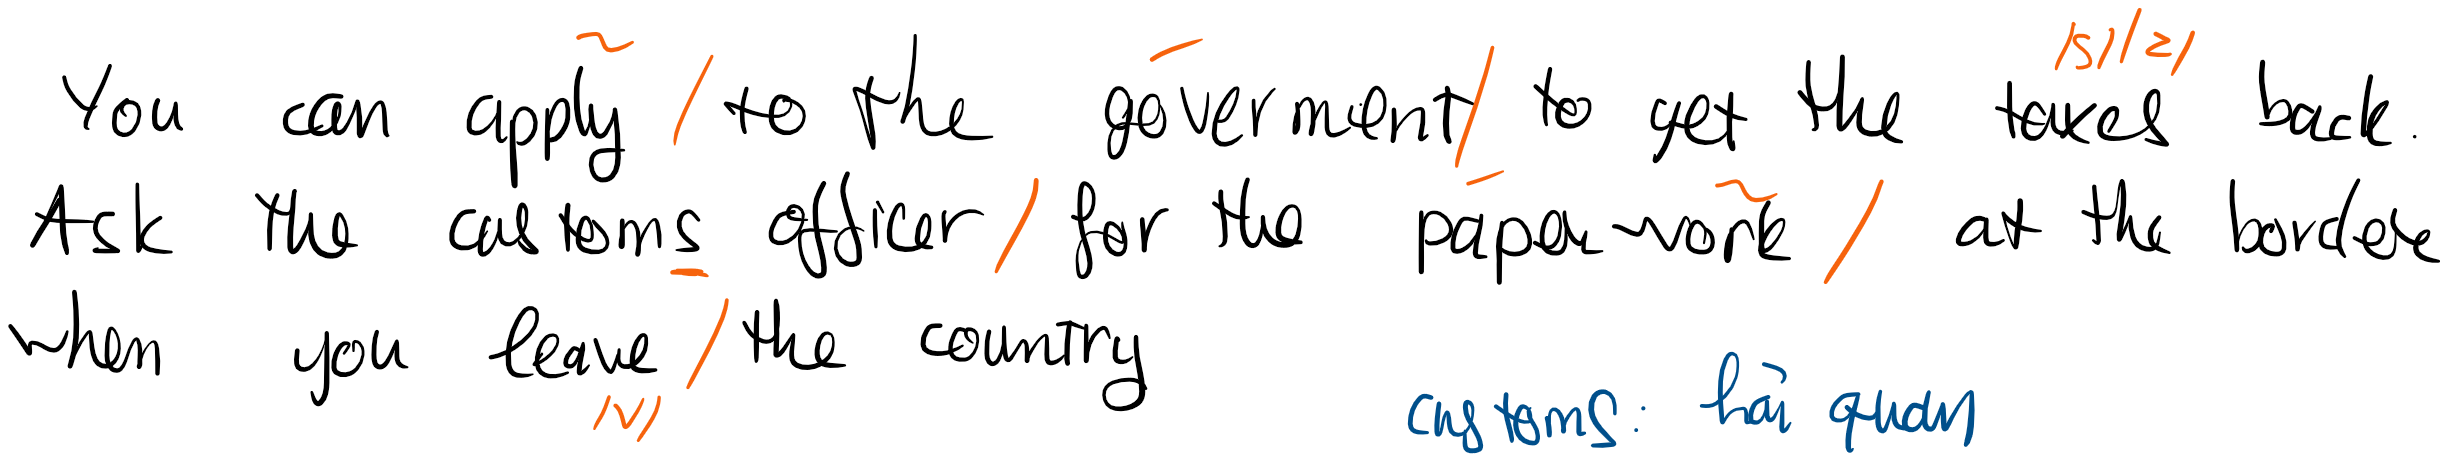 /s/ /z/
You can apply / to the goverment / to get the taxes back.
Ask the customs officer / for the paperwork / at the border
when you leave / the country
/v/
customs: hải quan